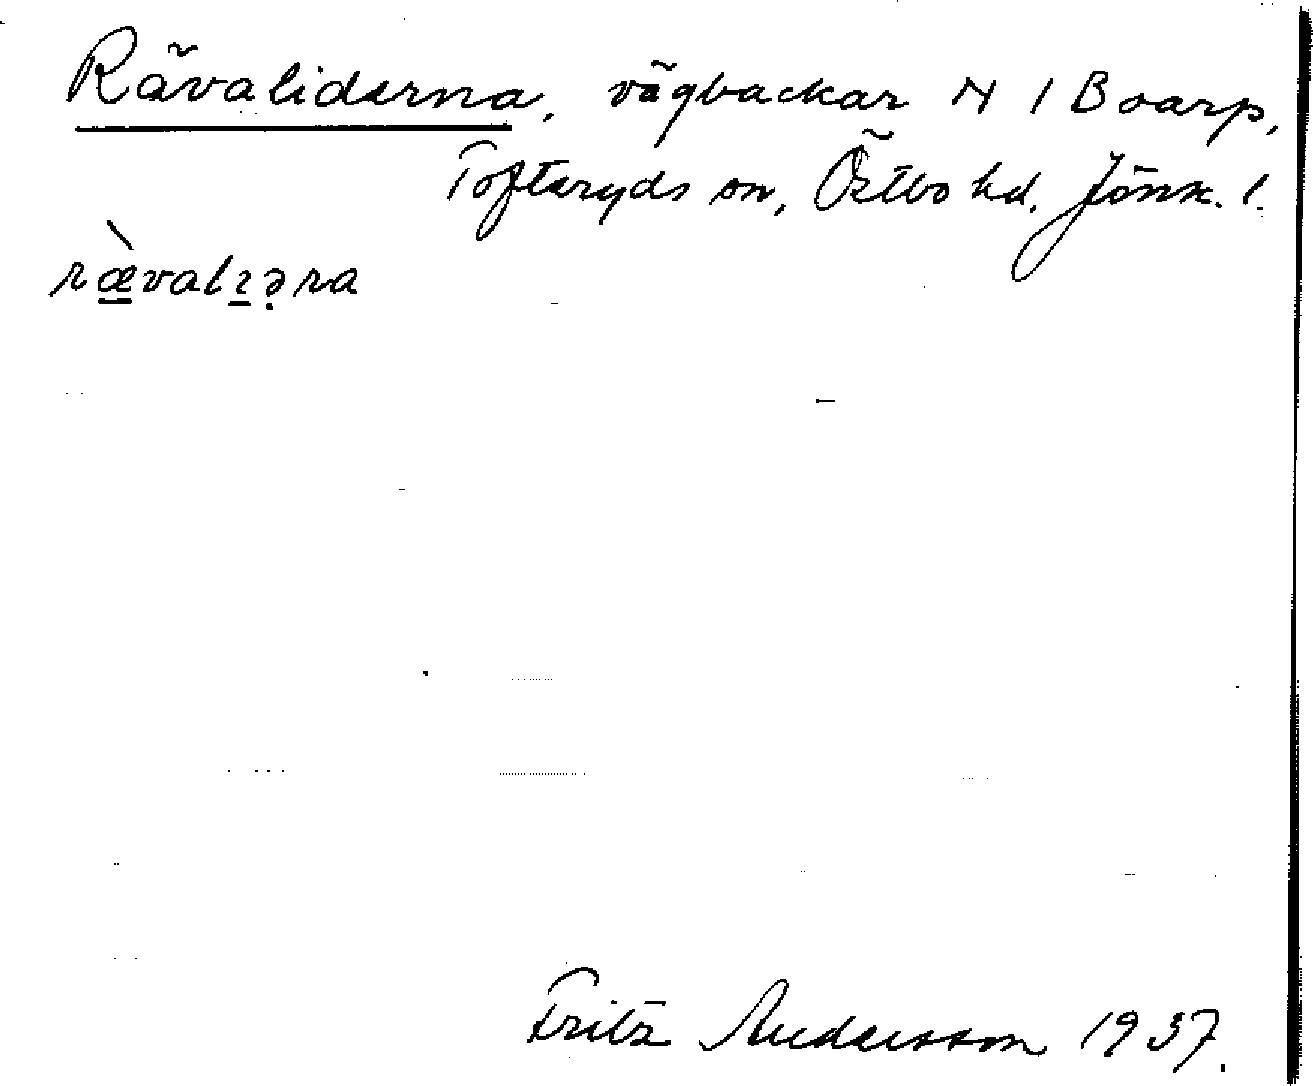 Rävaliderna, vägbackar N 1 Boarp,
Tofteryds sn, Östbo hd. Jönk. l.
ræ̀valɪəra
Fritz Andersson 1937.